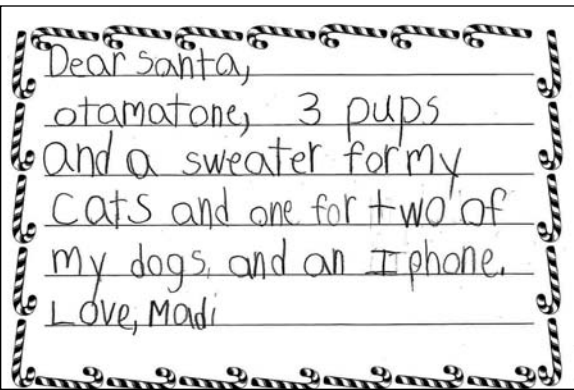 Dear Santa,
otamatone, 3 pups
and a sweater for my
cats and one for two of
my dogs, and an Iphone.
Love, Madi